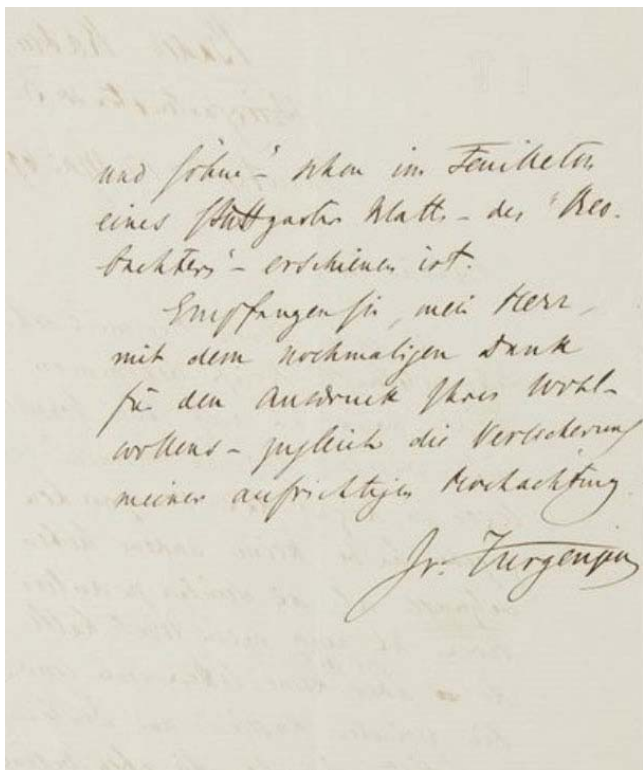 und Söhne" – schon im Feuilleton
eines Stuttgarter Blatts – des "Beo-
bachters" – erschienen ist.
Empfangen Sie, mein Herr,
mit dem nochmaligen Dank
für den Ausdruck Ihres Wohl-
wollens – zugleich die Versicherung
meiner aufrichtigen Hochachtung.
Iv. Turgenjew